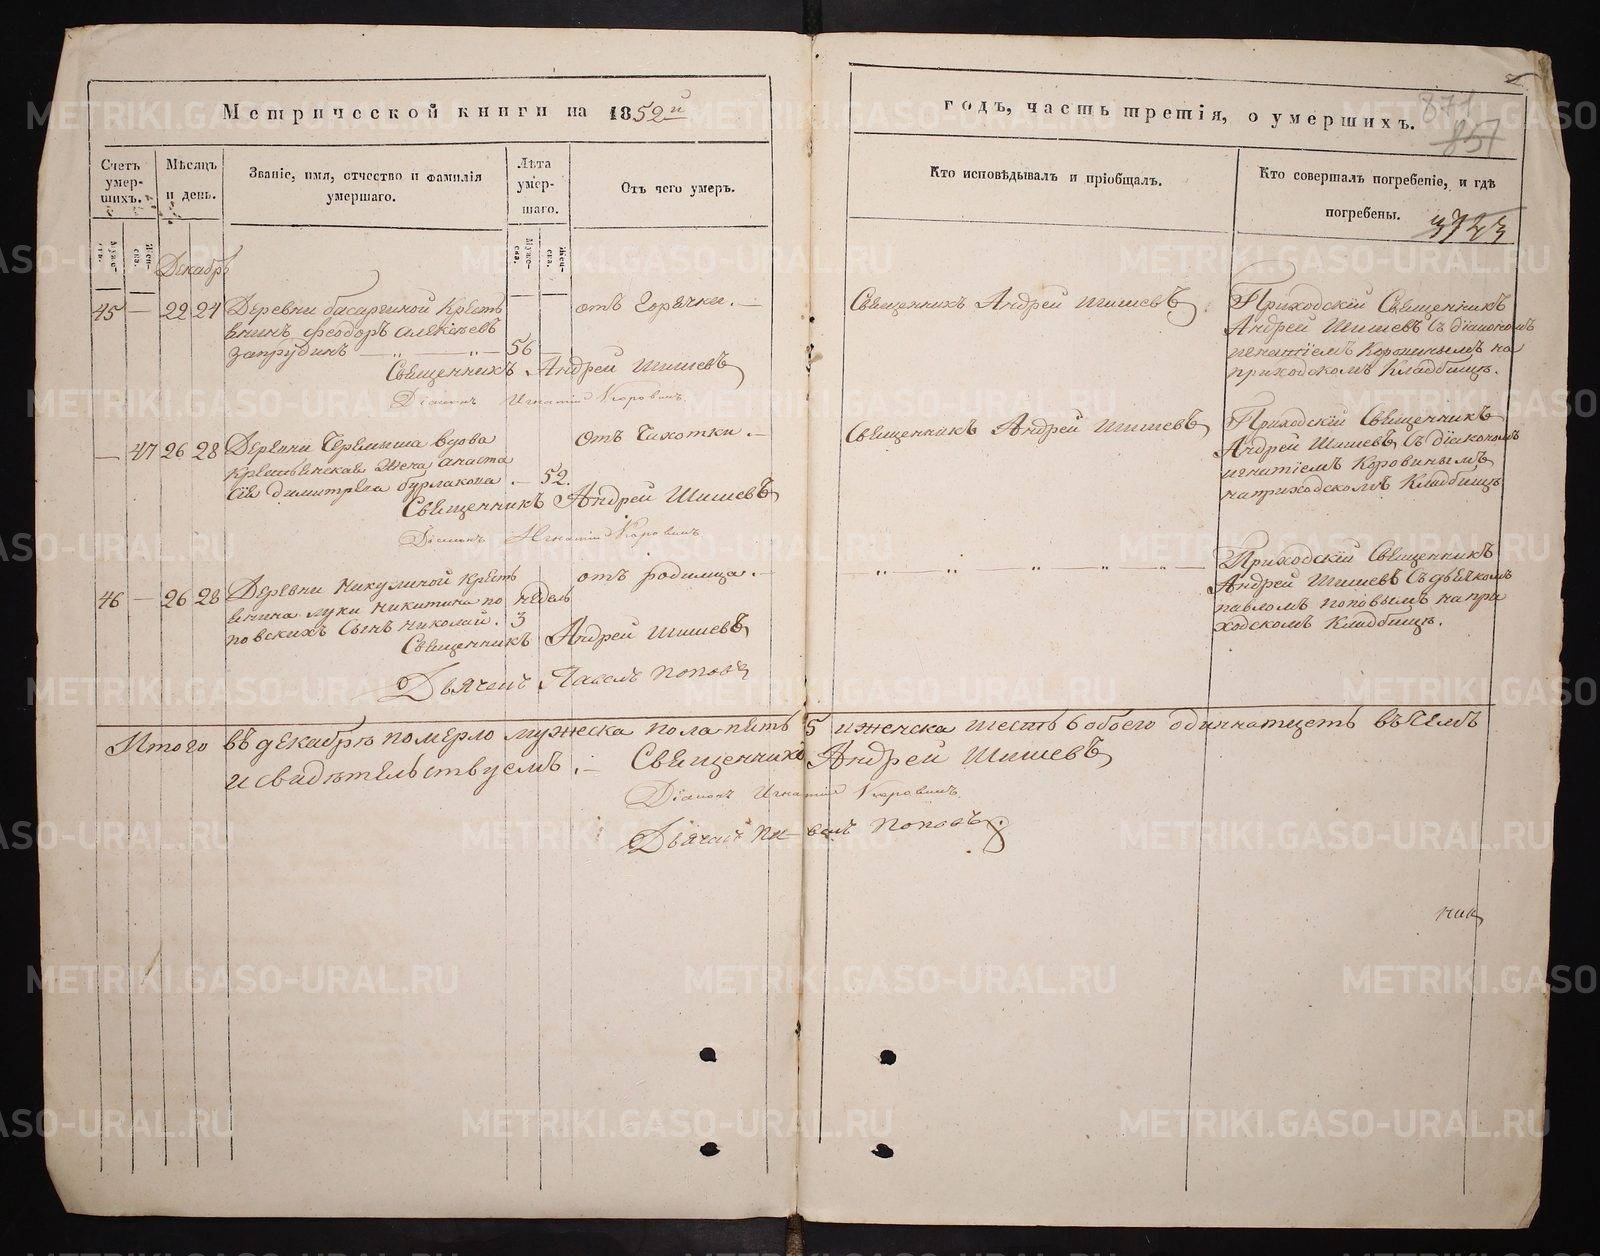 Метрической книги на 1852й
годъ, часть третія, о умершихъ.
871
857
Счетъ умер-шихъ.
Мѣсяцъ и день.
Званіе, имя, отчество и фамилія умершаго.
Лѣта умер-шаго.
Отъ чего умеръ.
Кто исповѣдывалъ и пріобщалъ.
Кто совершалъ погребеніе, и гдѣ погребены.
3723
Муже-ска.
Жен-ска.
Муже-ска.
Жен-ска.
Декабрь
45 — 22 24
Деревни басариной Кресть
янинъ феодоръ алексѣевъ
Запрудинъ — „ — „ — 56
отъ Горячки. —
Священникъ Андрей Шишевъ
Діаконъ Игнатій Коровинъ
Священникъ Андрей Шишевъ
Приходскій Священникъ
Андрей Шишевъ съ діакономъ
игнатіемъ Коровинымъ на
приходскомъ Кладбищѣ.
— 47 26 28
Деревни Черемыша вдова
Крестьянская жена анаста
сія димитріева бурлакова . — 52.
отъ Чахотки . —
Священникъ Андрей Шишевъ
Діаконъ Игнатій Коровинъ
Священникъ Андрей Шишевъ
Приходскій Священникъ
Андрей Шишевъ съ діакономъ
игнатіемъ Коровинымъ
на приходскомъ Кладбищѣ
46 — 26 28
Деревни Никулиной Кресть
янина луки никитина по
повскихъ сынъ николай. 3 недель
отъ родимца. —
Священникъ Андрей Шишевъ
Дьячекъ Павелъ Поповъ
— „ — „ — „ — „ — „ —
Приходскій Священникъ
Андрей Шишевъ съ дьячкомъ
павломъ поповымъ на при
ходскомъ Кладбищѣ.
Итого въ декабрѣ померло мужеска пола пять 5 и женска шесть 6 обоего одиннатцеть въ чемъ
и свидѣтельствуемъ . — Священникъ Андрей Шишевъ
Діаконъ Игнатій Коровинъ
Дьячекъ Павелъ Поповъ